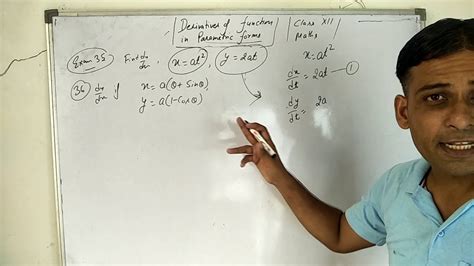 Derivatives of function
in Parametric forms
Class XII
Maths
Exam 35 Find dy/dx, x = at², y = 2at
36 dy/dx if x = a(θ + Sinθ)
y = a(1 - Cosθ)
x = at²
dx/dt = 2at — 1
dy/dt = 2a